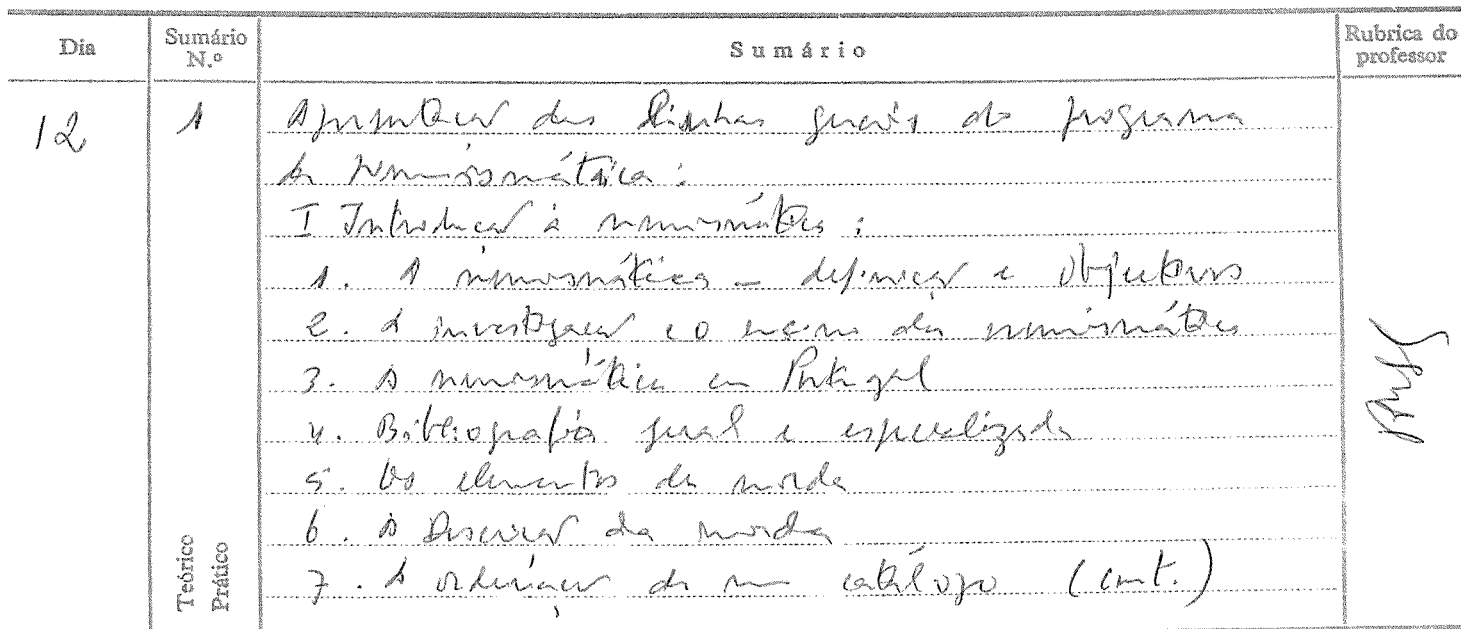 Dia
Sumário N.º
Sumário
Rubrica do professor
12
1
Apresentação das linhas gerais do programa
de Numismática:
I Introdução à numismática:
1. A numismática – definição e objectivos
2. A investigação e o ensino da numismática
3. A numismática em Portugal
4. Bibliografia geral e especializada
5. Os elementos da moeda
6. A Descrição da moeda
7. A ordenação de um catálogo (cont.)
Teórico
Prático